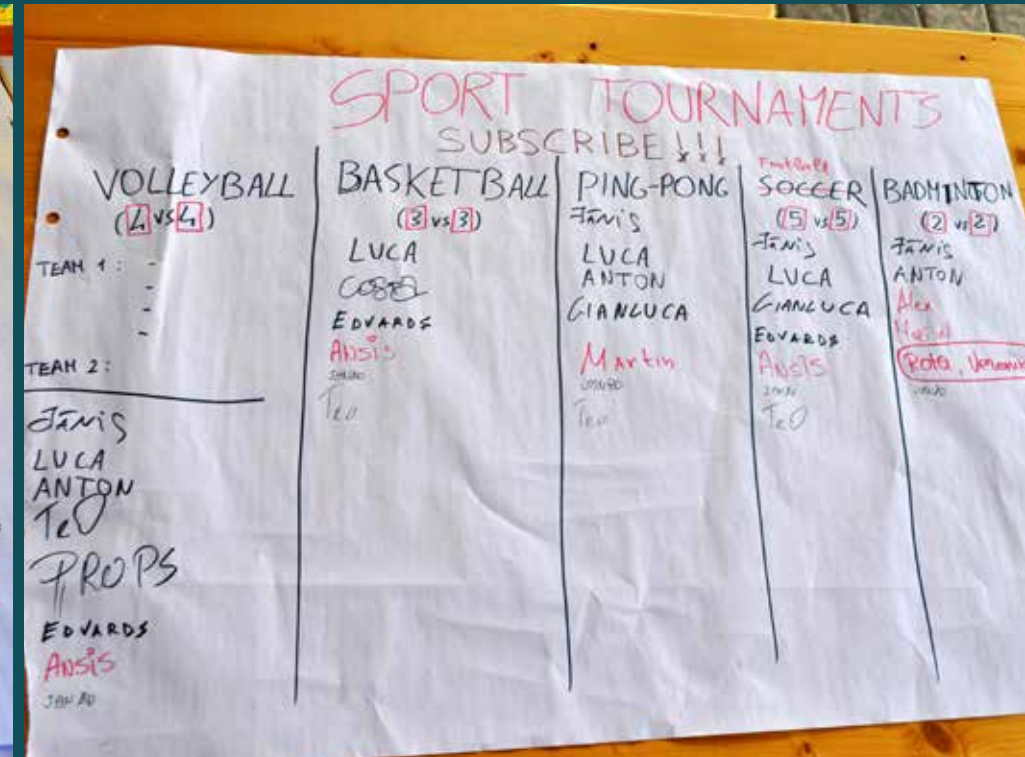 SPORT TOURNAMENTS
SUBSCRIBE!!!
VOLLEYBALL
(4 vs 4)
TEAM 1: -
-
-
-
TEAM 2:
JĀNIS
LUCA
ANTON
TEO
PROPS
EDVARDS
ANSIS
BASKETBALL
(3 vs 3)
LUCA
EDVARDS
ANSIS
TEO
PING-PONG
JĀNIS
LUCA
ANTON
GIANLUCA
Martin
TEO
Football
SOCCER
(5 vs 5)
JĀNIS
LUCA
GIANLUCA
EDVARDS
ANSIS
TEO
BADMINTON
(2 vs 2)
JĀNIS
ANTON
Alex
Rota,